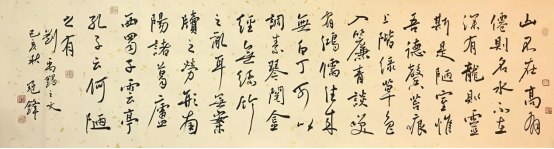 山不在高有
僊則名水不在
深有龍則靈
斯是陋室惟
吾德馨苔痕
上階綠草色
入簾青談笑
有鴻儒往來
無白丁可以
調素琴閱金
經無絲竹
之亂耳無案
牘之勞形南
陽諸葛廬
西蜀子雲亭
孔子云何陋
之有
劉禹錫之文
己亥秋